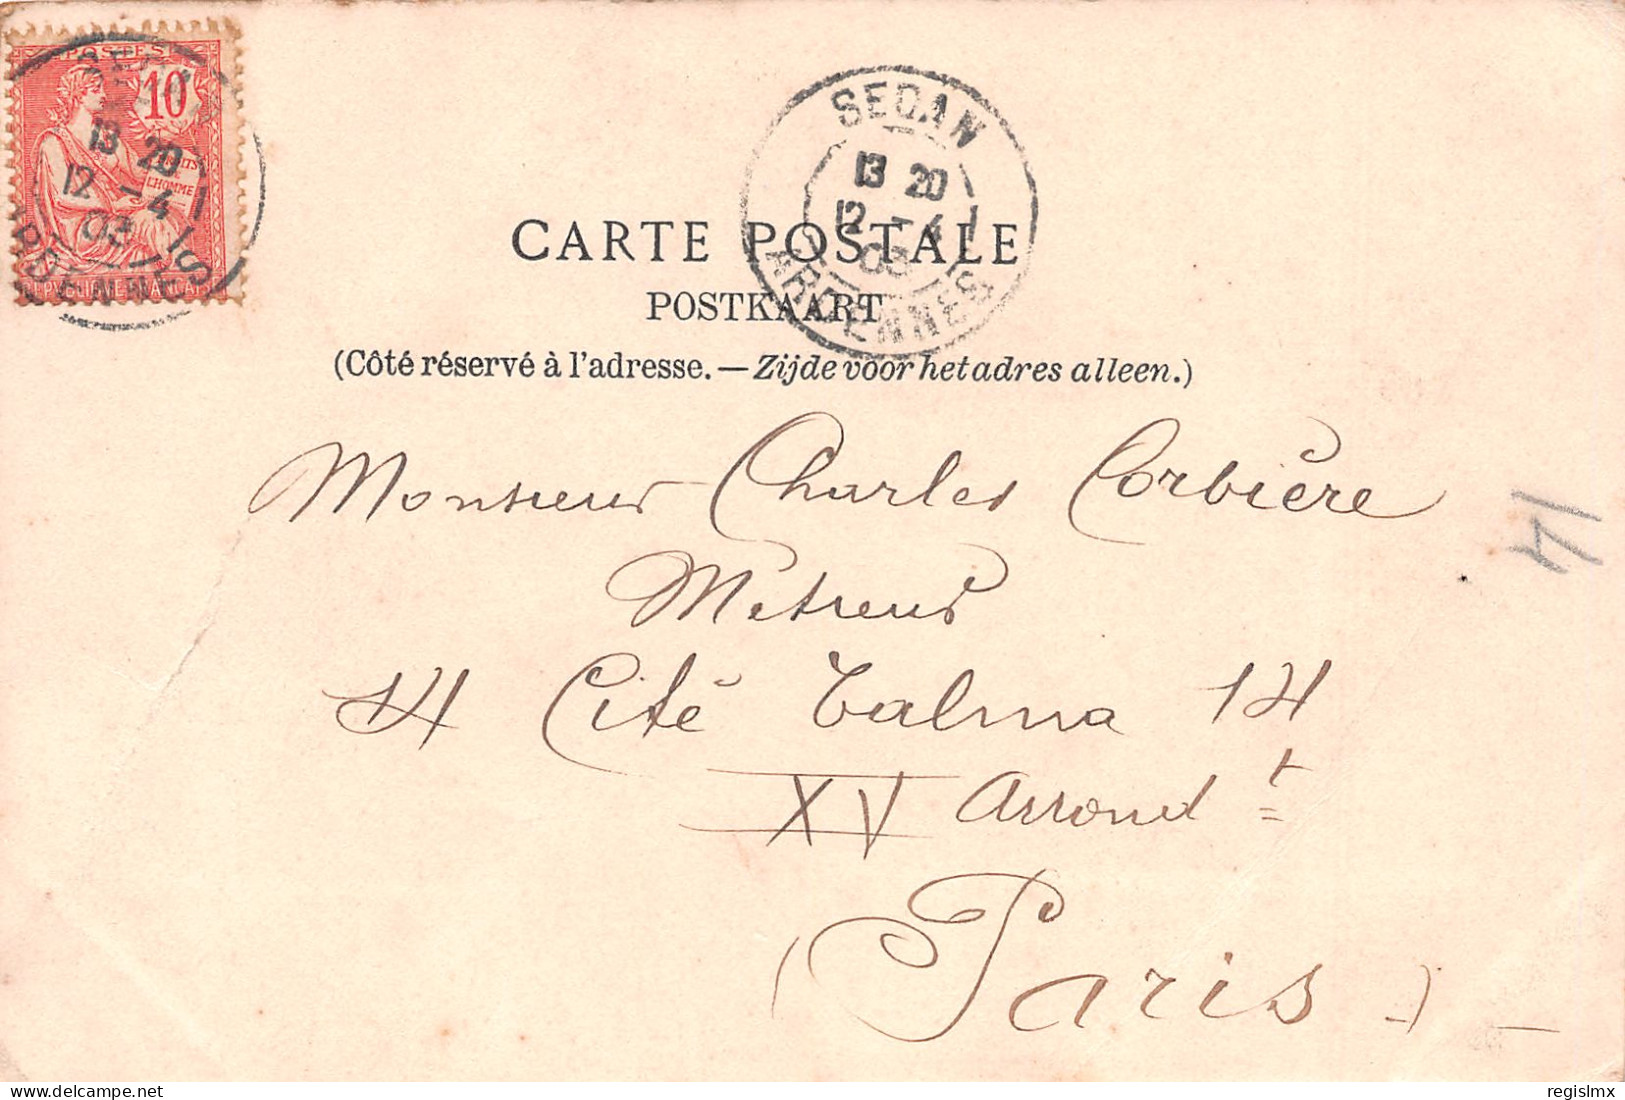 POSTES
10
DROITS
L'HOMME
13 20
12 - 4
03
ARDENNES
SEDAN
13 20
12 - 4
03
ARDENNES
CARTE POSTALE
POSTKAART
(Côté réservé à l'adresse. — Zijde voor het adres alleen.)
Monsieur Charles Corbière
Métreur
14 Cité Talma 14
XV Arrondt
(Paris)
14
regislmx